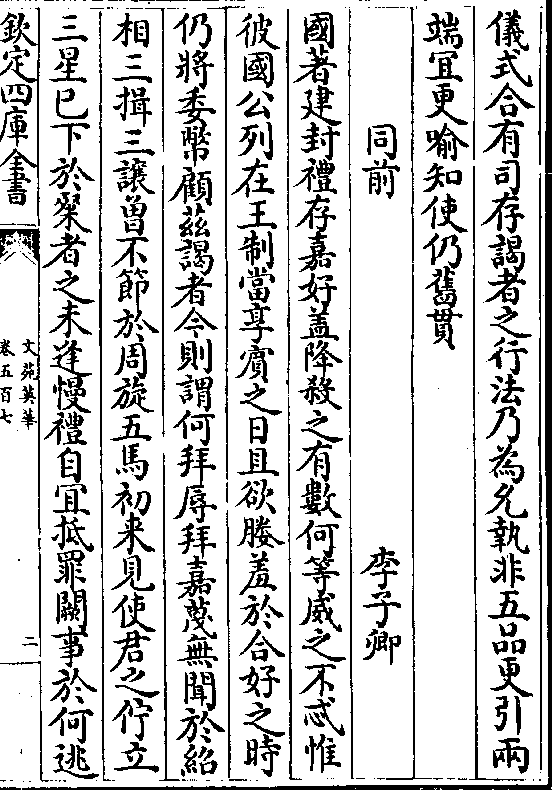 儀式合有司存謁者之行法乃為允執非五品更引兩
端宜更喻知使仍舊貫
同前 李子卿
國著建封禮存嘉好盖降殺之有數何等威之不忒惟
彼國公列在王制當享賔之日且欲媵羞於合好之時
仍將委幣顧兹謁者今則謂何拜辱拜嘉蔑無聞於紹
相三揖三讓曽不節於周旋五馬初来見使君之佇立
三星已下於粲者之未逢慢禮自宜抵罪闕事於何逃
欽定四庫全書
文苑英華
卷五百七
二